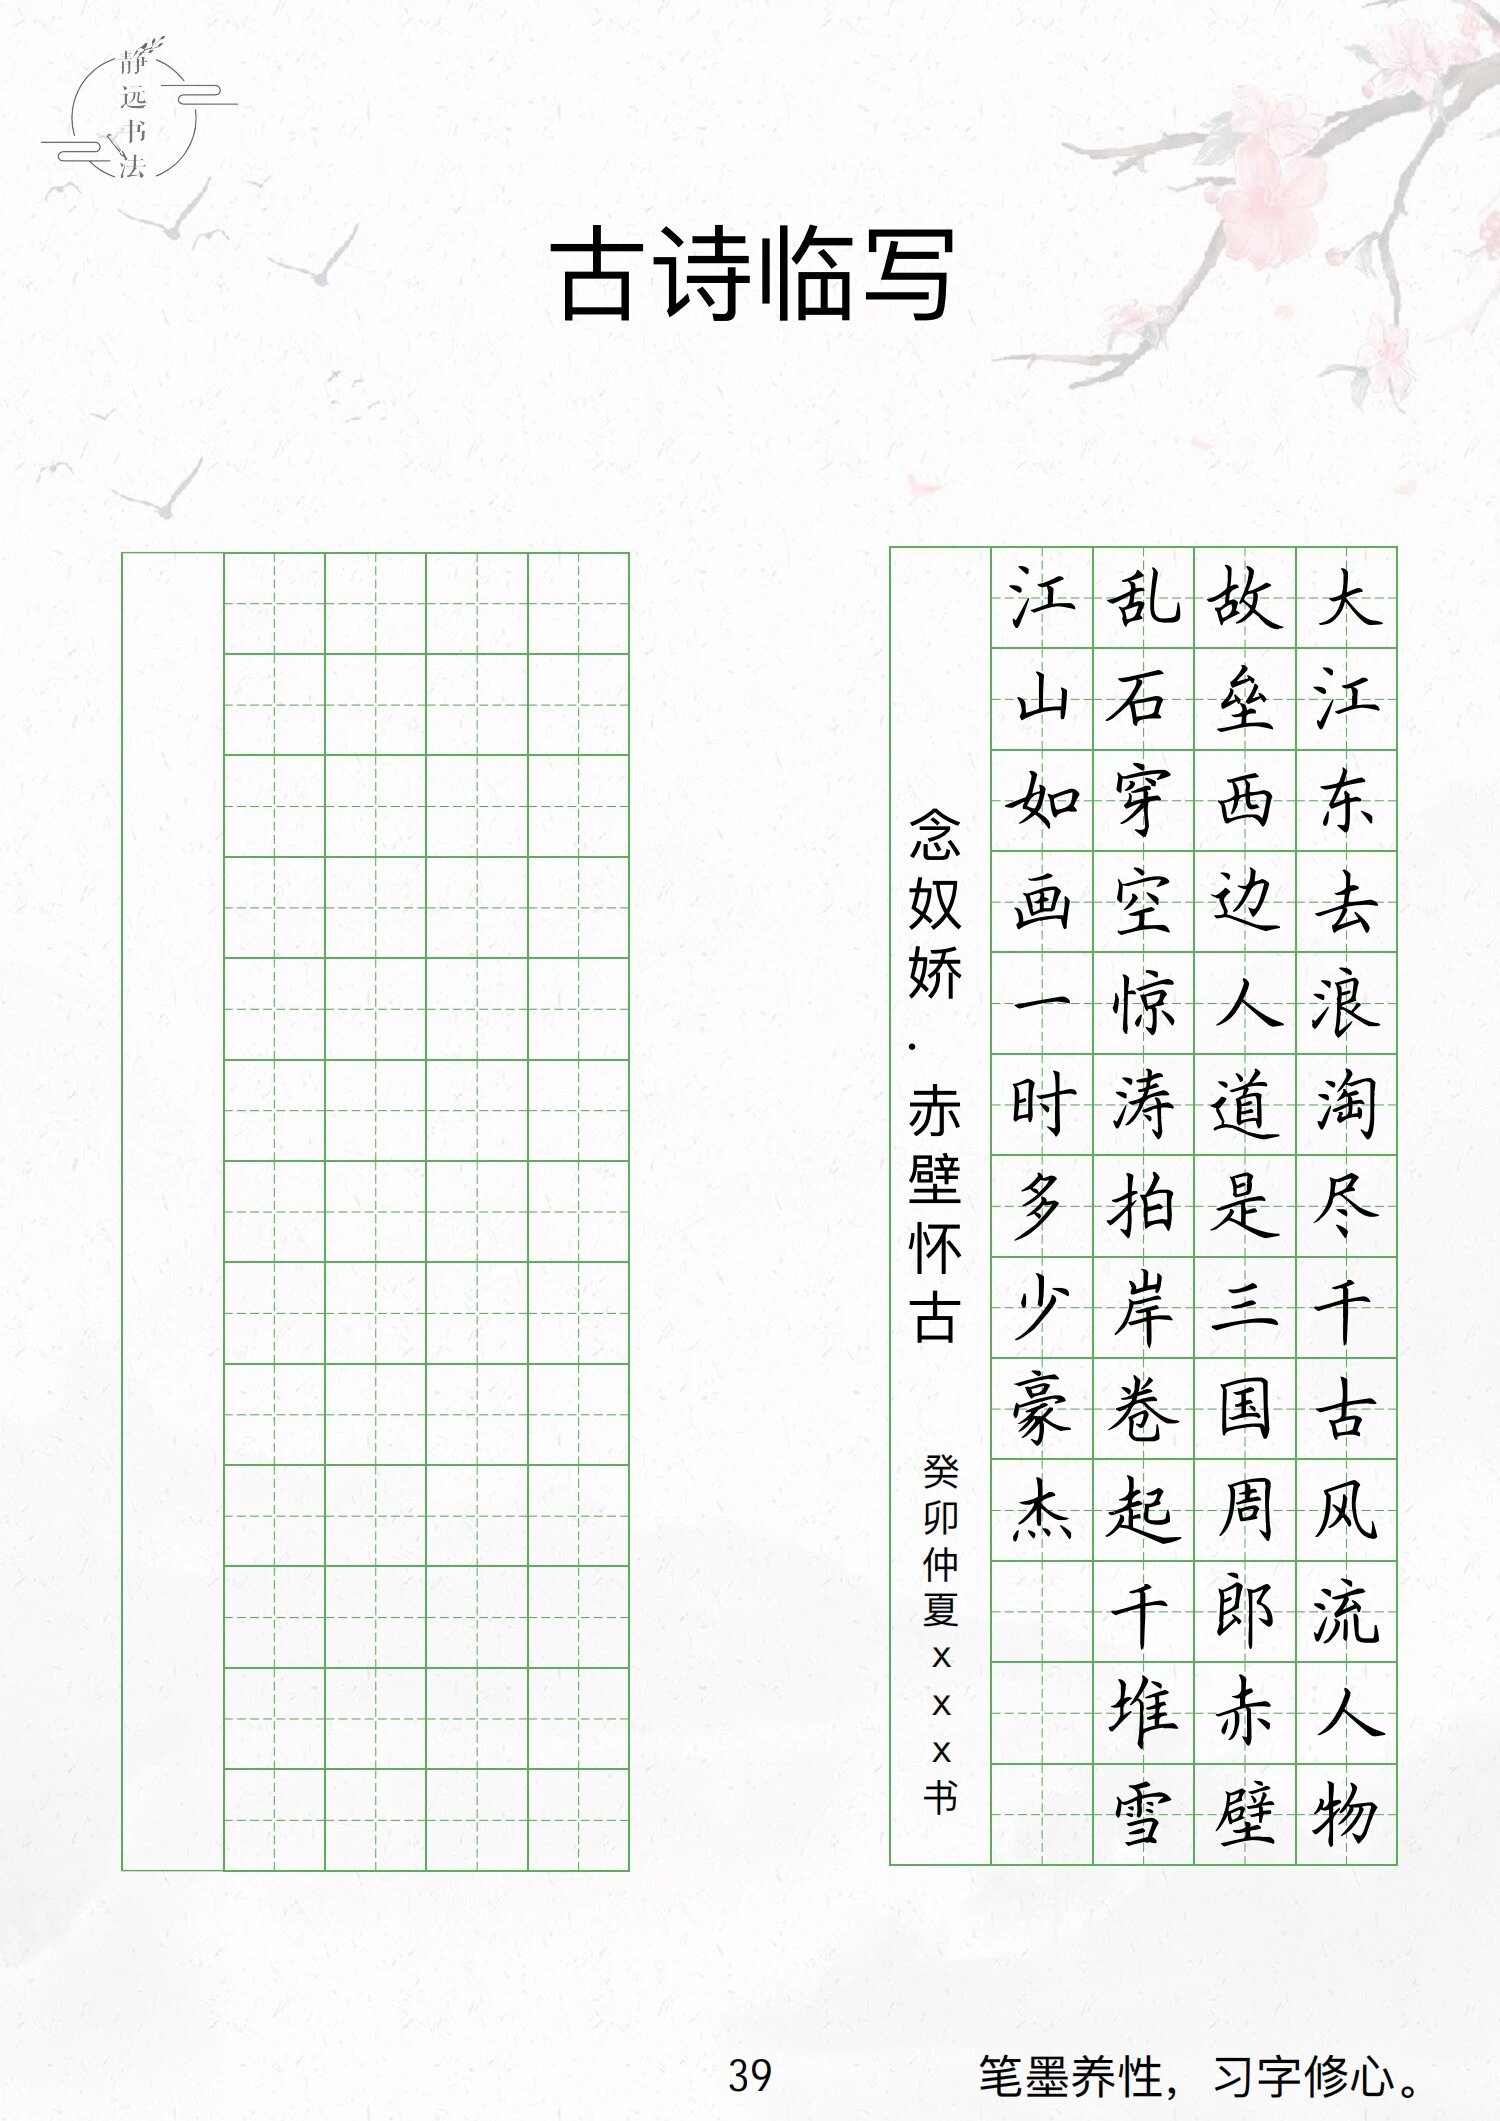 静远书法
古诗临写
大江东去浪淘尽千古风流人物
故垒西边人道是三国周郎赤壁
乱石穿空惊涛拍岸卷起千堆雪
江山如画一时多少豪杰
念奴娇.赤壁怀古
癸卯仲夏xxx书
39
笔墨养性，习字修心。